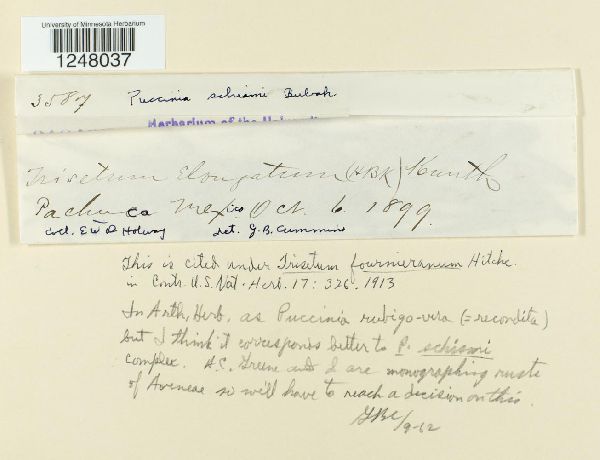 University of Minnesota Herbarium
1248037
3587 Puccinia schismi Bubak
Herbarium of the
Trisetum Elongatum (HBK) Kunth
Pachuca Mexico Oct. 6. 1899.
Coll. E W D Holway det. G.B. Cummins
This is cited under Trisetum fournieranum Hitchc.
in Contr. U.S. Nat. Herb. 17: 326. 1913
In Arth. Herb. as Puccinia rubigo-vera (= recondita)
but I think it corresponds better to P. schismi
complex. H.C. Greene and I are monographing rusts
of Aveneae so will have to reach a decision on this.
GBC/9-62